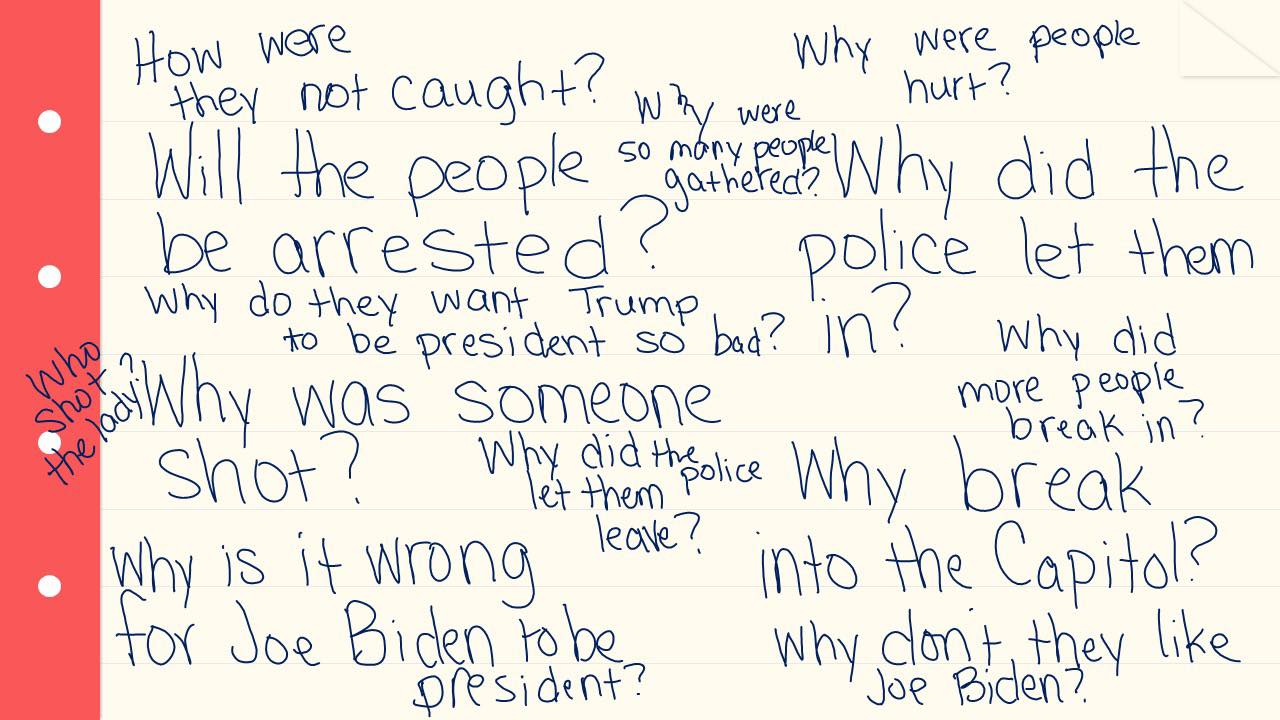 How were
they not caught?
Why were people
hurt?
Why were
so many people
gathered?
Will the people
be arrested?
Why did the
police let them
in?
Why do they want Trump
to be president so bad?
Who
shot
the lady?
Why was someone
shot?
Why did
more people
break in?
Why did the police
let them
leave?
Why break
into the Capitol?
Why is it wrong
for Joe Biden to be
president?
Why don't they like
Joe Biden?